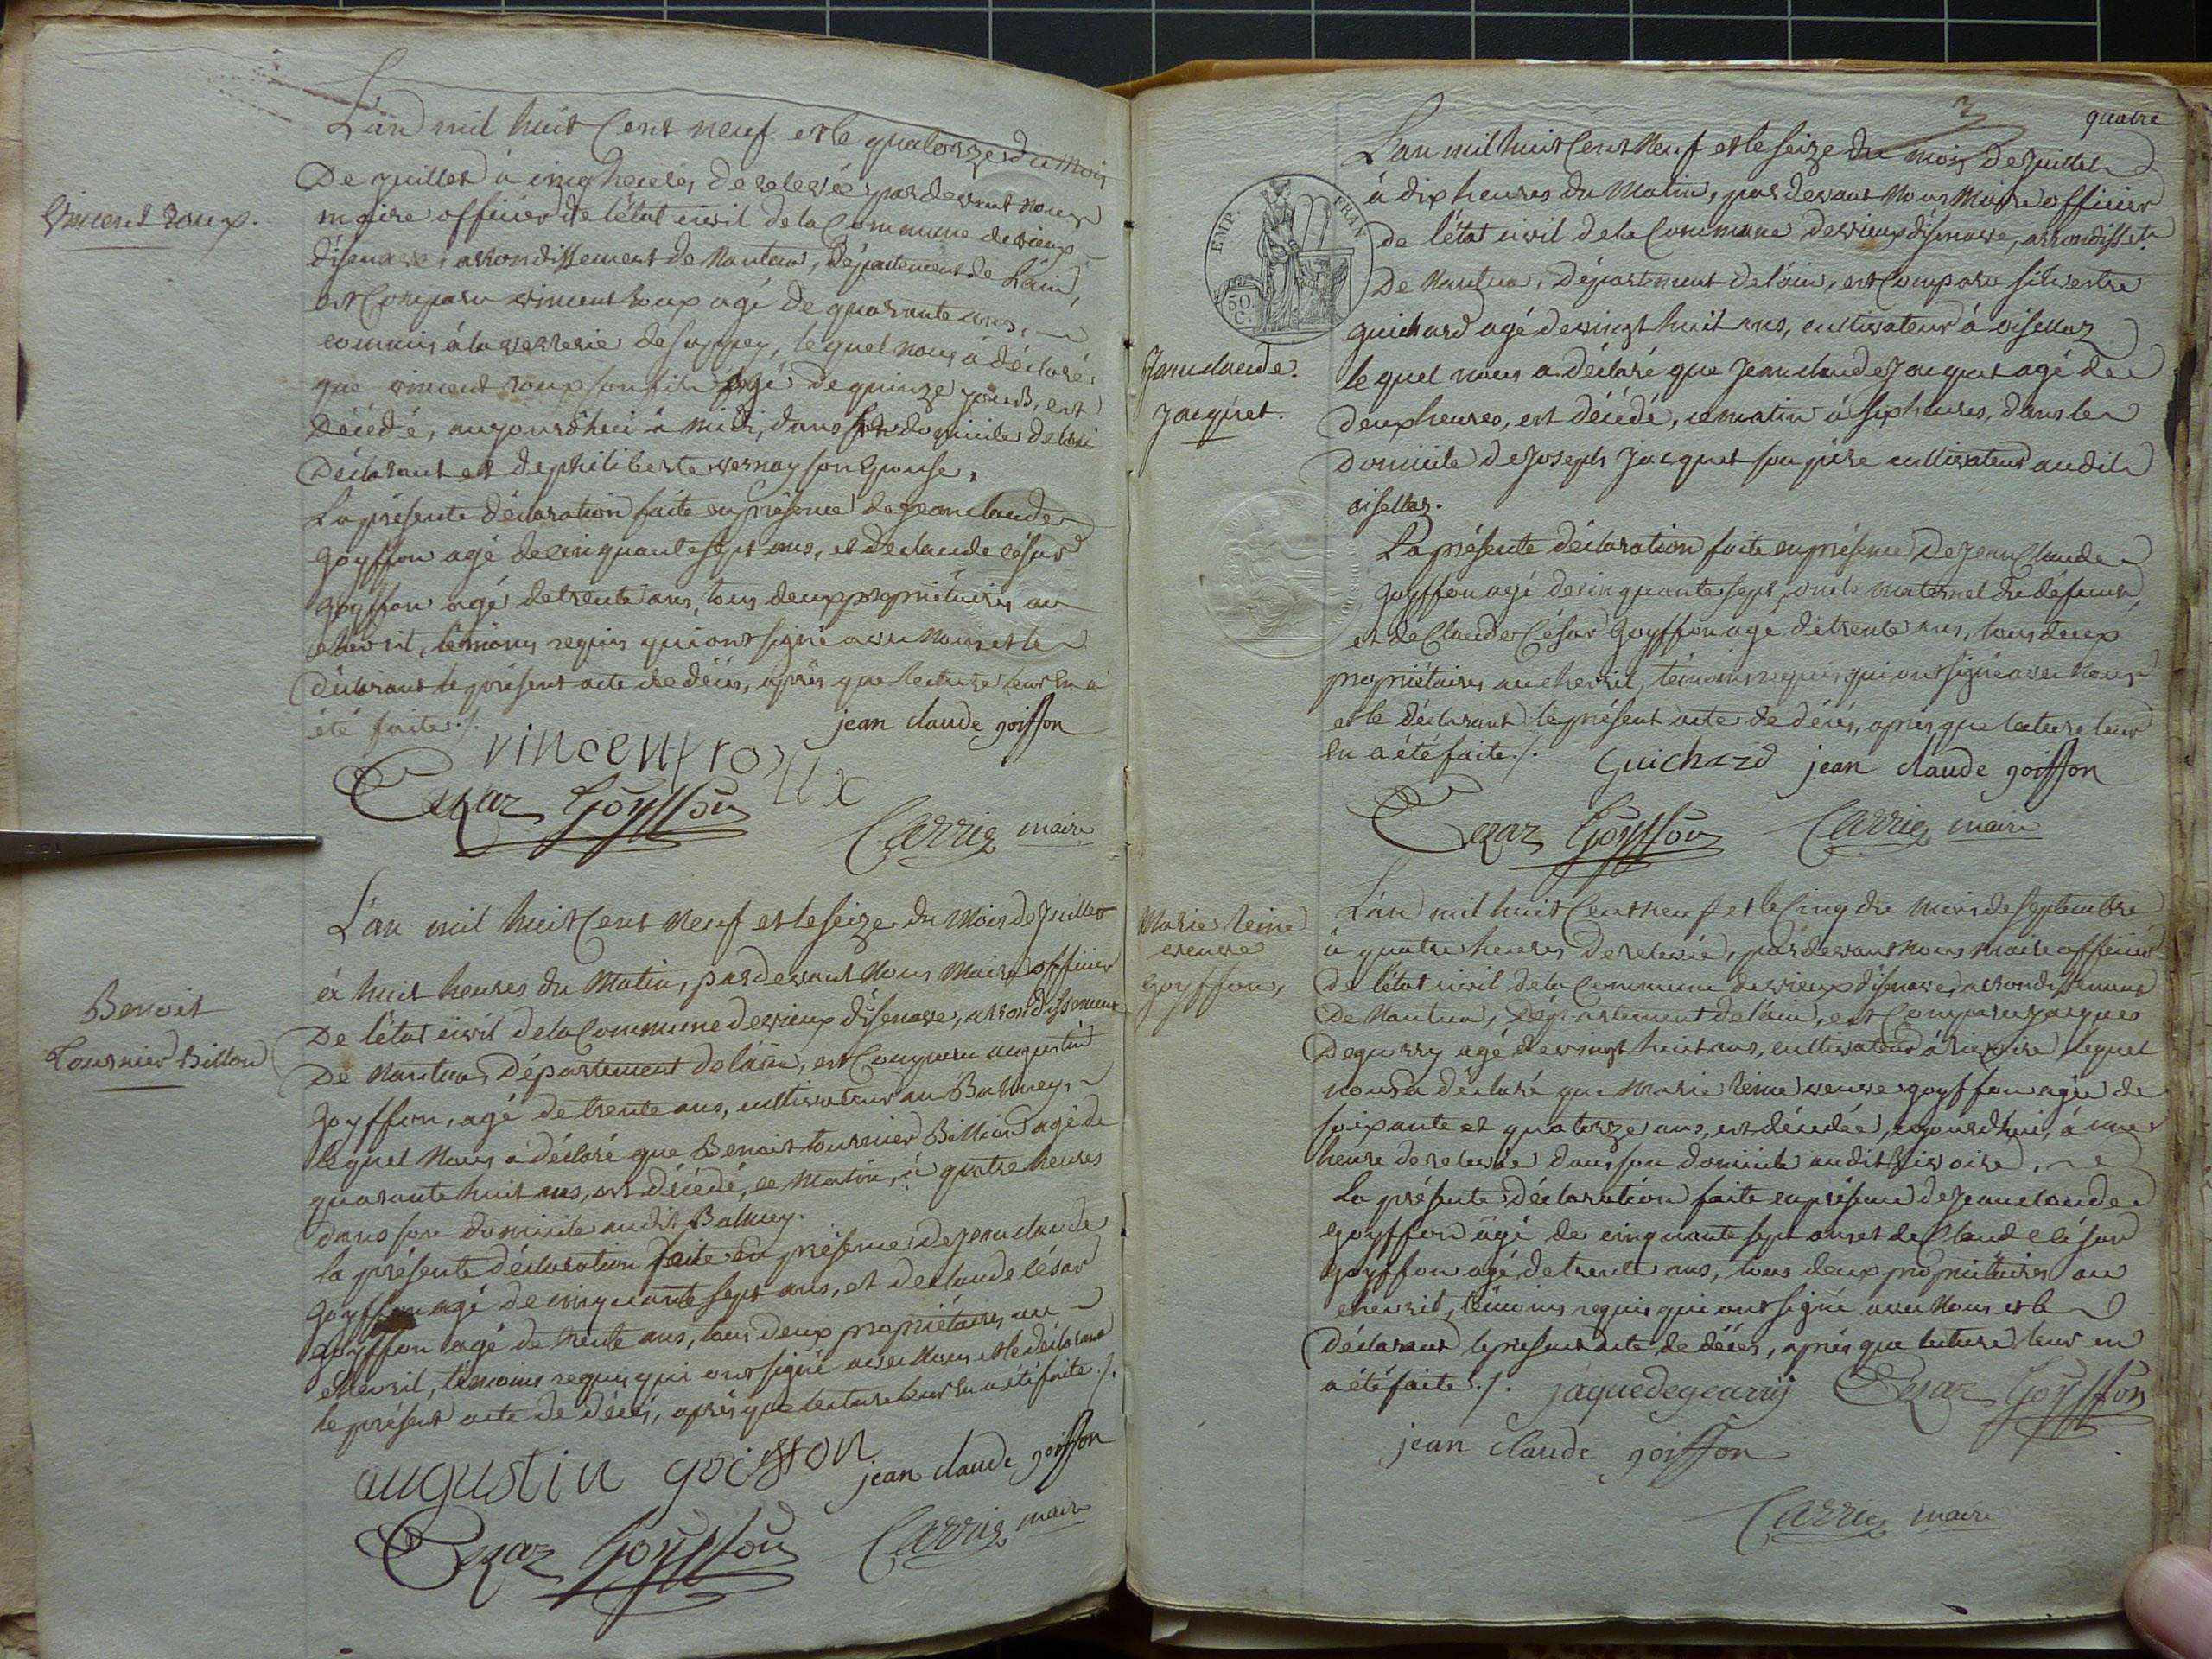 Vincent roux.
L'an mil huit Cent neuf et le quatorze du Mois
De juillet à cinq heures de relevée pardevant nous
maire officier de l'état civil de la Commune de vieux
d'isenave, arrondissement de Nantua, Département de L'ain,
est Comparu vincent roux agé de quarante ans,
commis à la verrerie de sappey, lequel nous à déclaré
que vincent roux son fils agé de quinze jours, est
Décédé, aujourd'hui à midi, dans domicile de lui
Déclarant et de philiberte vernay son Epouse.
La présente déclaration faite en présence de jean claude
goyffon agé de cinquante sept ans, et de claude césar
goyffon agé de trente ans, tous deux propriétaires au
chevril, témoins requis qui ont signé avec Nous et le
déclarant le présent acte de décès, après que lecture leur En a
été faite ./.
jean claude goiffon
vincent roux
Cezar Goyffon
Carrig maire
Benoit
Tournier Billon
L'an mil huit Cent Neuf et le seize du Mois de Juillet
à huit heures du Matin, pardevant Nous Maire officier
De l'état civil de la Commune de vieux d'isenave, arrondissement
De Nantua, Département de l'ain, est Comparu augustin
Goyffon, agé de trente ans, cultivateur au Balmey,
lequel Nous à déclaré que Benoit tournier Billion agé de
quarante huit ans, est décédé, ce Matin, à quatre heures
dans son domicile audit Balmey.
la présente déclaration faite en présence de jean claude
Goyffon agé de cinquante sept ans, et de claude césar
goyffon agé de trente ans, tous deux propriétaires au
chevril, témoins requis qui ont signé avec Nous et le déclarant
le présent acte de décès, après que lecture leur En a été faite ./.
augustin goiffon
jean claude goiffon
Cezar Goyffon
Carrig maire
3
quatre
EMP. FRAN
50
C.
Jean claude
Jacquet.
L'an mil huit Cent Neuf et le seize du mois de juillet
à dix heures du Matin, pardevant Nous Maire officier
De l'état civil de la Commune de vieux d'isenave, arrondisst.
De Nantua, Département de l'ain, est Comparu silvestre
guichard agé de vingt huit ans, cultivateur à oisellaz
lequel nous a déclaré que Jean claude Jacquet agé de
deux heures, est décédé, ce matin à six heures, dans le
Domicile de Joseph Jacquet son père cultivateur audit
oisellaz.
La présente déclaration faite en présence De Jean Claude
Goyffon agé de cinquante sept, oncle maternel du défunt,
et de Claude César Goyffon agé de trente ans, tous deux
propriétaires au chevril, témoins requis qui ont signé avec Nous
et le déclarant le présent acte de décès, après que lecture leur
En a été faite ./.
Guichard jean claude goiffon
Cezar Goyffon
Carrig maire
Marie reine
veuve
Goyffon,
L'an mil huit Cent neuf et le Cinq du Mois de septembre
à quatre heures de relevée, pardevant Nous maire officier
De l'état civil de la Commune de vieux d'isenave, arrondissement
De Nantua, Département de l'ain, est Comparu jacques
Degurry agé de vingt huit ans, cultivateur à rivoire lequel
nous a déclaré que Marie reine veuve goyffon agée de
soixante et quatorze ans, est décédée, aujourd'hui, à une
heure de relevée dans son domicile audit rivoire.
La présente déclaration faite en présence de Jean claude
Goyffon agé de cinquante sept ans et de Claude césar
Goyffon agé de trente ans, tous deux propriétaires au
chevril, témoins requis qui ont signé avec Nous et le
Déclarant le présent acte de décès, après que lecture leur en
a été faite ./. jaque degeurry Cezar Goyffon
jean claude goiffon
Carrig maire